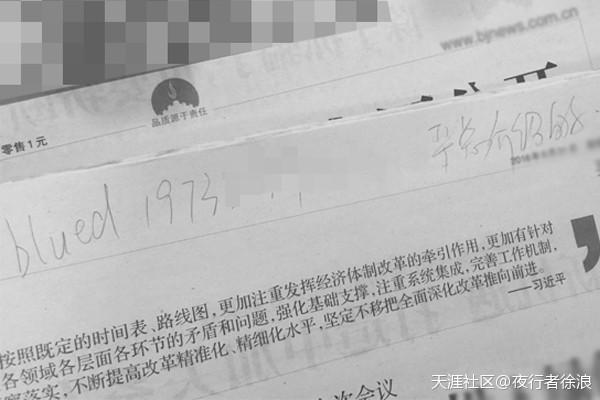 www.bjnews.com.cn
品质源于责任
零售1元
blued 1973
介绍的
按照既定的时间表、路线图,更加注重发挥经济体制改革的牵引作用,更加有针对
各领域各层面各环节的矛盾和问题,强化基础支撑,注重系统集成,完善工作机制,
落实,不断提高改革精准化、精细化水平,坚定不移把全面深化改革推向前进。
——习近平
会议
天涯社区@夜行者徐浪